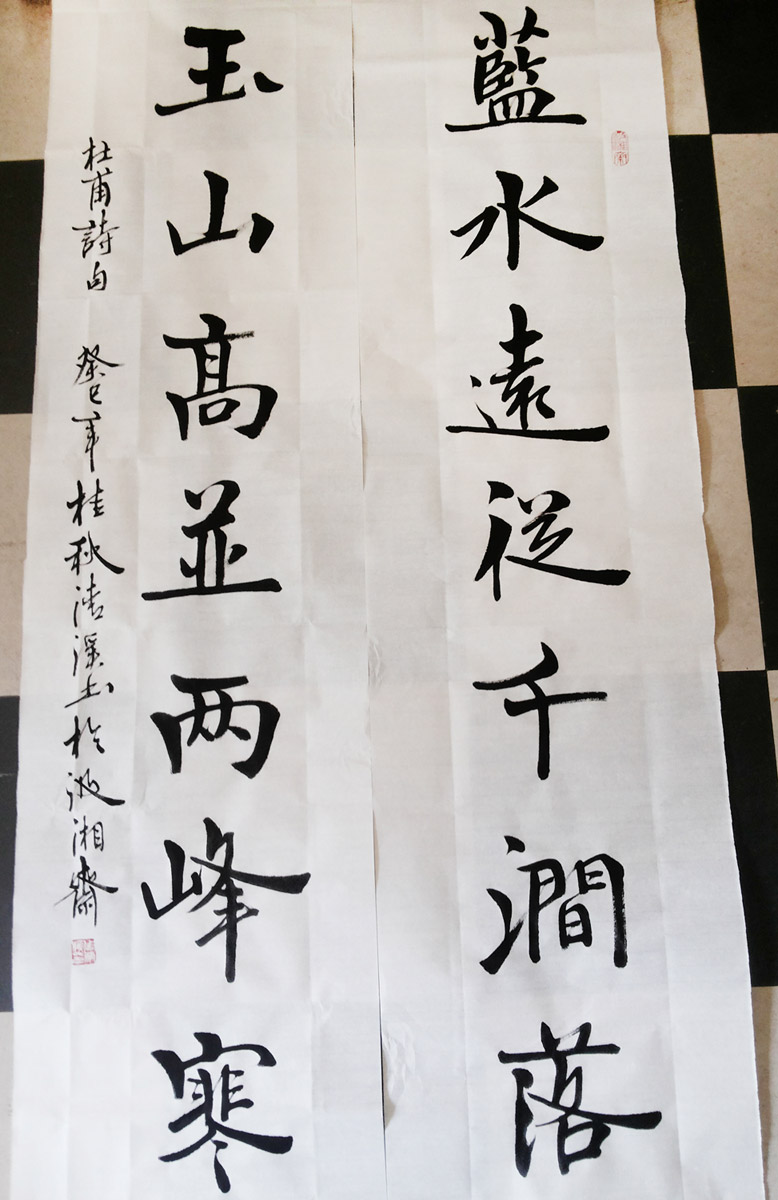 藍水遠從千澗落
玉山高並两峰寒
杜甫詩句 癸巳年桂秋清溪書於 湘齋